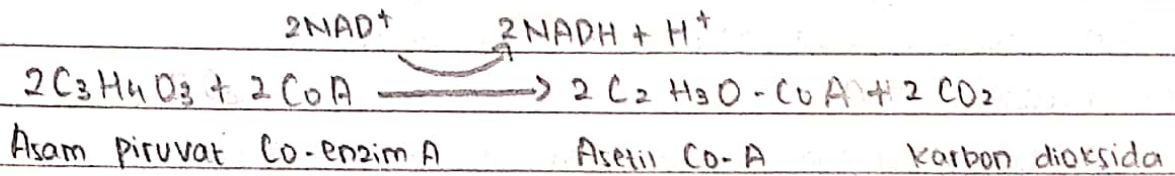 2NAD⁺ 2NADH + H⁺
2C₃H₄O₃ + 2 CoA → 2 C₂ H₃O - CoA + 2 CO₂
Asam piruvat Co-enzim A Asetil Co-A karbon dioksida